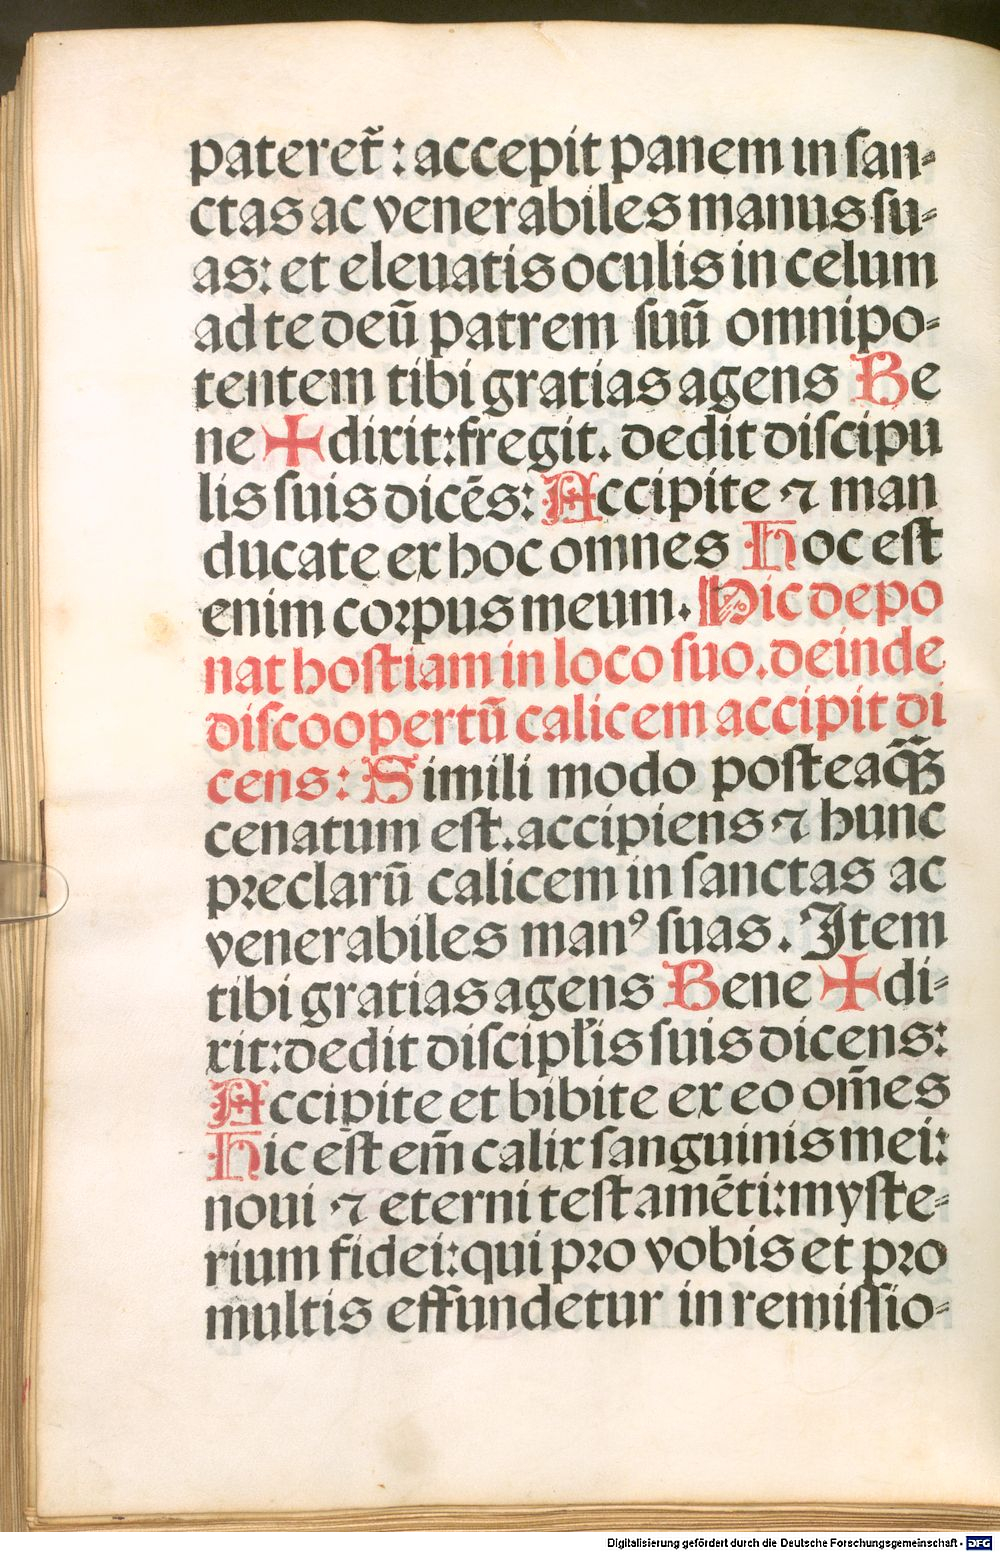 pateret̃: accepit panem in ſan⸗
ctas ac venerabiles manus ſu⸗
as: et eleuatis oculis in celum
ad te deū patrem ſuū omnipo⸗
tentem tibi gratias agens Be
ne ✠ dixit: fregit. dedit diſcipu
lis ſuis dicēs: Accipite ⁊ man
ducate ex hoc omnes Hoc eſt
enim coꝛpus meum. Hic depo
nat hoſtiam in loco ſuo. deinde
diſcoopertū calicem accipit di
cens: Simili modo poſteaꝙ̃
cenatum eſt. accipiens ⁊ hunc
pꝛeclarū calicem in ſanctas ac
venerabiles manꝰ ſuas. Item
tibi gratias agens Bene ✠ di⸗
xit: dedit diſcipl̃is ſuis dicens:
Accipite et bibite ex eo om̃es
Hic ēſt em̄ calix ſanguinis mei:
noui ⁊ eterni teſtamēti: myſte⸗
rium fidei: qui pꝛo vobis et pꝛo
multis effundetur in remiſſio⸗
Digitalisierung gefördert durch die Deutsche Forschungsgemeinschaft - DFG